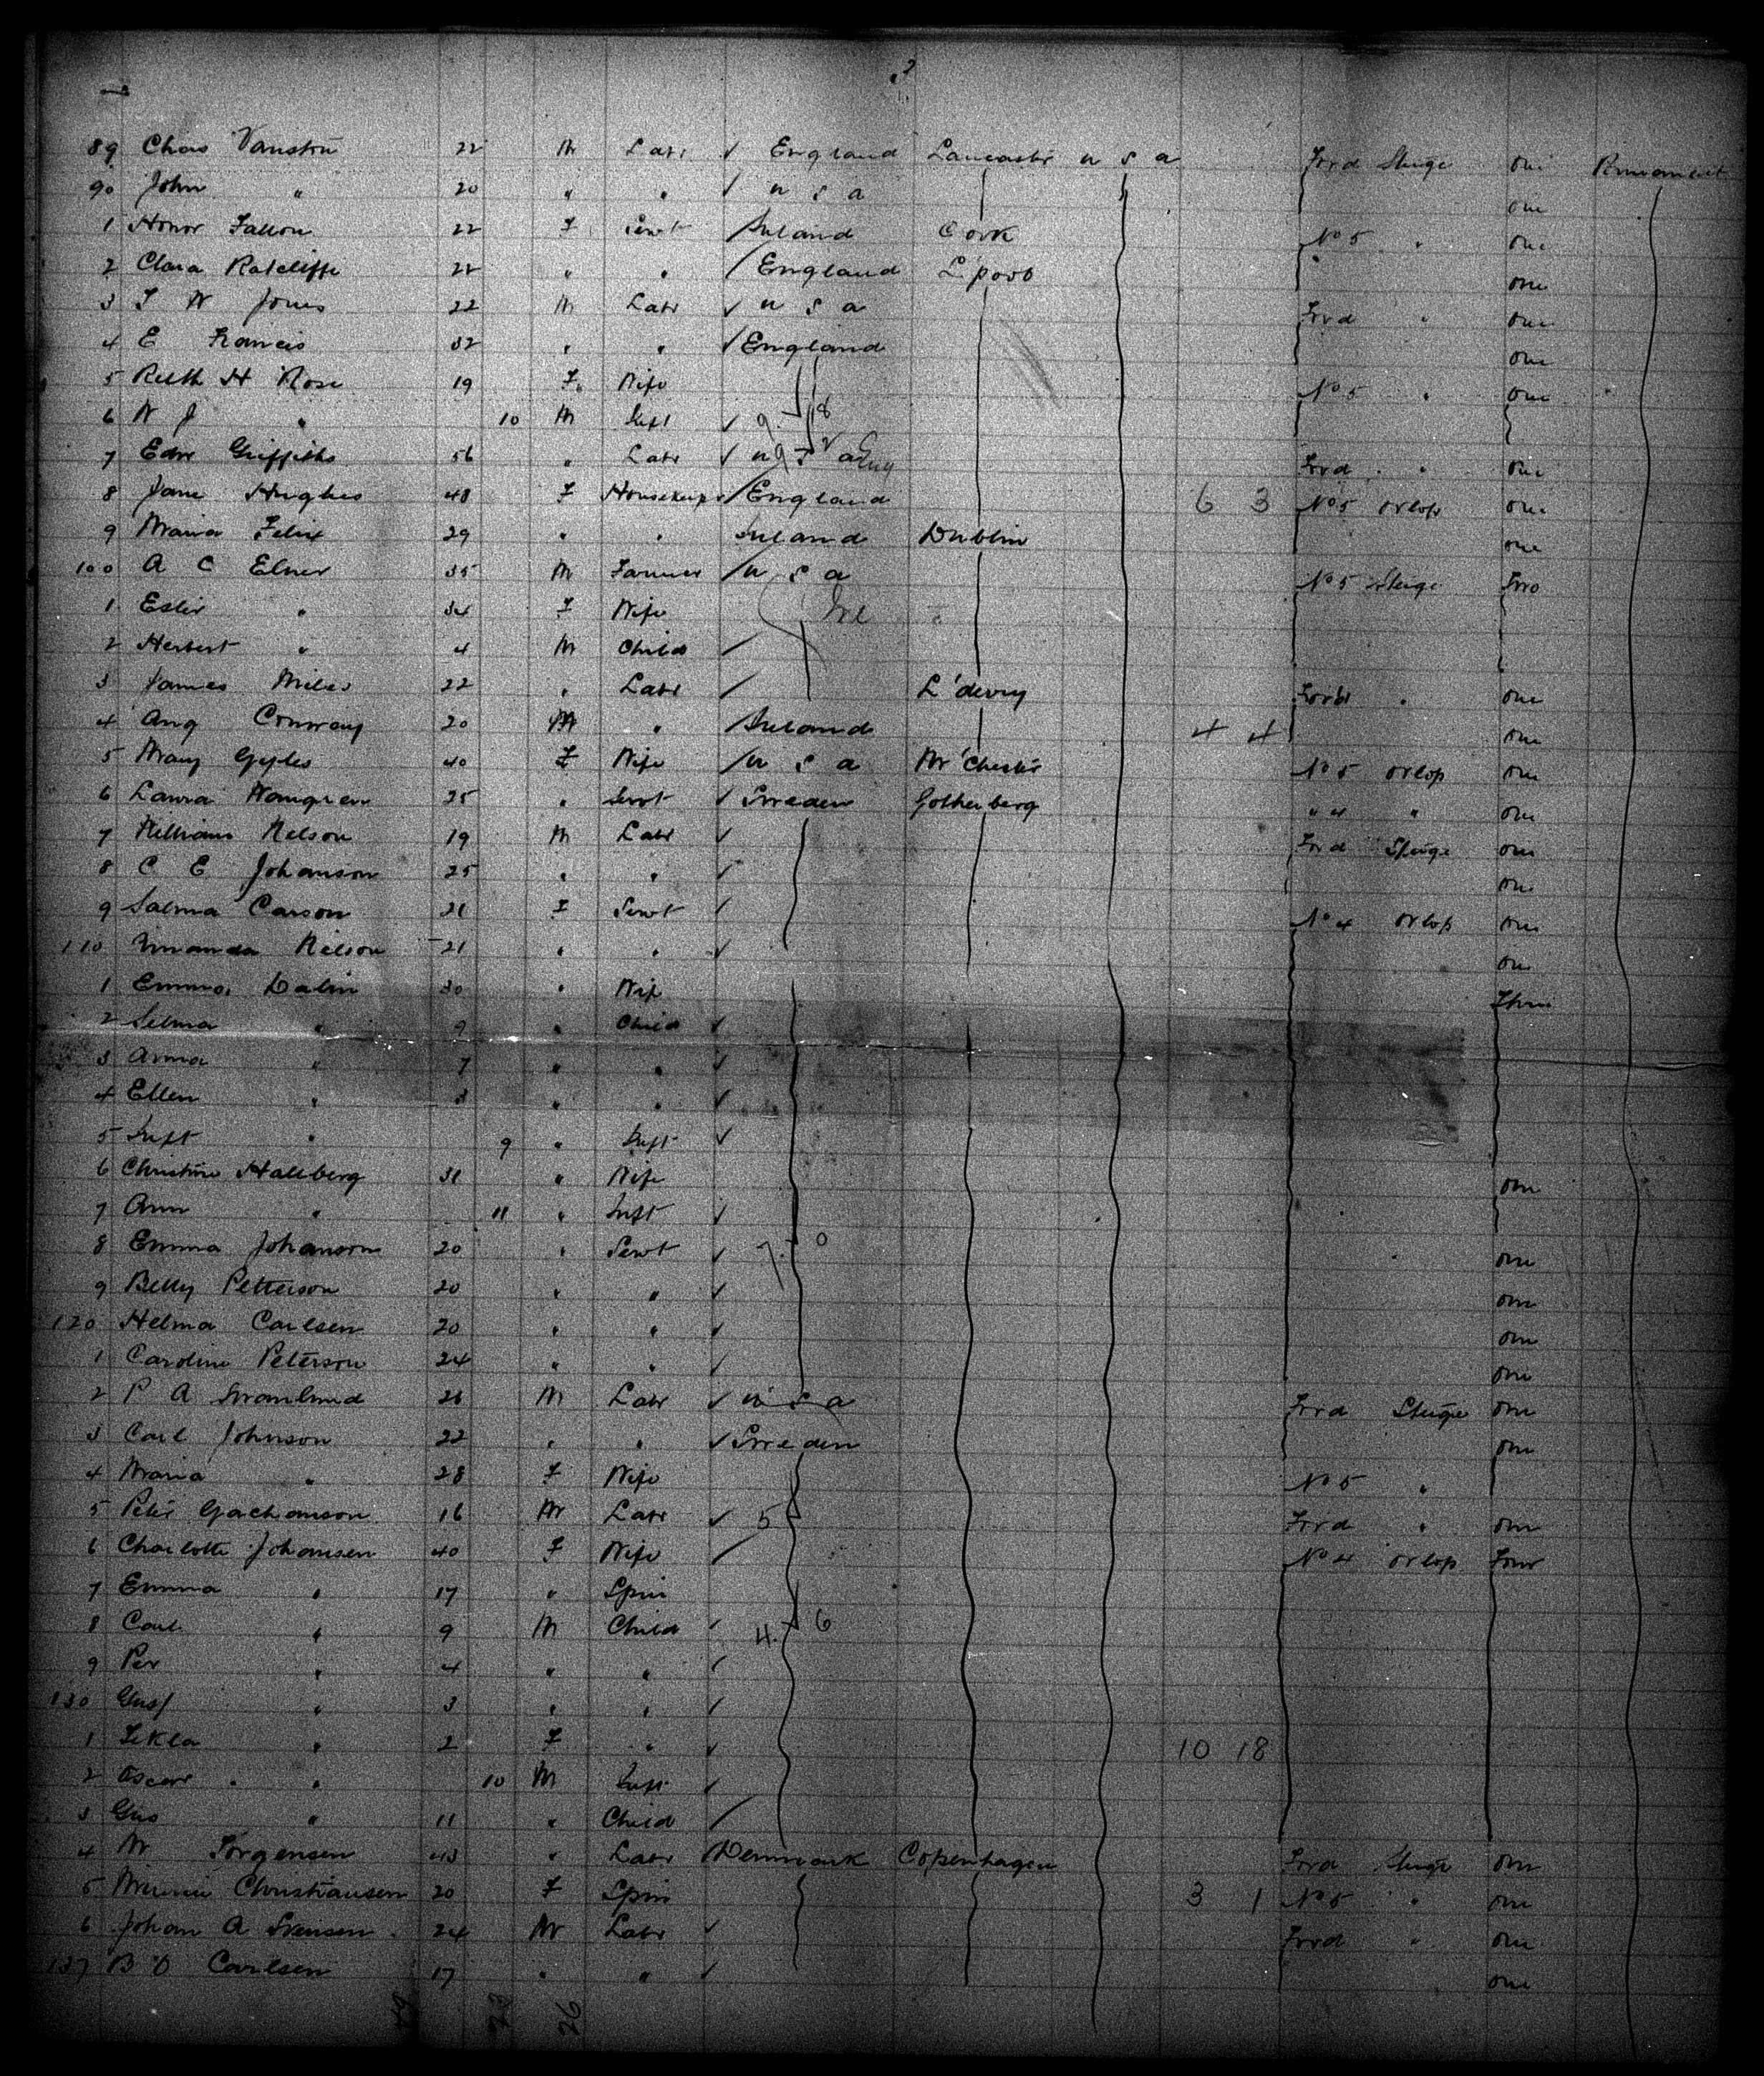 89 Chas Vanston 22 M Labr ✓ England Lancaster U S A Ford Sterge One Permanent
90 John " 20 " " ✓ U S A One
1 Honor Fallon 22 F Servt / Ireland Cork No 5 " One
2 Clara Ratcliffe 22 " " / England L'pool One
3 T W Jones 22 M Labr ✓ U S A Ford " One
4 E Francis 32 " " ✓ England One
5 Ruth H Rose 19 F Wife No 5 " One
6 W J " 10 M Inft ✓
7 Edw Griffiths 56 " Labr ✓ U S A Ford " One
8 Jane Hughes 48 F Housekeeper / England 6 3 No 5 Orlop One
9 Maria Felix 29 " " Ireland Dublin One
100 A C Elner 35 M Farmer / U S A No 5 Sterge Two
1 Ester " 34 F Wife
2 Herbert " 4 M Child /
3 James Miles 22 " Labr / L'derry Ford " One
4 Aug Conway 20 M " / Ireland 4 4 One
5 Mary Gyles 40 F Wife / U S A M'Chester No 5 Orlop One
6 Laura Wangren 25 " Servt ✓ Sweden Gothenberg " 4 " One
7 William Nelson 19 M Labr ✓ Ford Sterge One
8 C E Johanson 25 " " ✓ One
9 Salma Carson 21 F Servt / No 4 Orlop One
110 Amanda Nelson 21 " " ✓ One
1 Emma Dalin 30 " Wife Three
2 Selma " 9 " Child ✓
3 Anna " 7 " " ✓
4 Ellen " 3 " " ✓
5 Inft " 9 " Inft ✓
6 Christine Hallberg 31 " Wife One
7 Ann " 11 " Inft ✓
8 Emma Johanson 20 " Servt ✓ One
9 Betty Petterson 20 " " ✓ One
120 Helma Carlsen 20 " " ✓ One
1 Caroline Peterson 24 " " / One
2 P A Stromlund 26 M Labr ✓ U S A Ford Sterge One
3 Carl Johnson 22 " " ✓ Sweden One
4 Maria " 28 F Wife No 5 "
5 Peter Gachanson 16 M Labr ✓ 5 Ford " One
6 Charlotte Johansen 40 F Wife / No 4 Orlop Four
7 Emma " 17 " Spin
8 Carl " 9 M Child ✓ 4 6
9 Per " 4 " " ✓
130 Gusf " 3 " " ✓
1 Tekla " 2 F " ✓ 10 18
2 Oscar " 10 M Inft ✓
3 Gus " 11 " Child /
4 M Jorgensen 43 " Labr / Denmark Copenhagen Ford Sterge One
5 Minnie Christiansen 20 F Spin 3 1 No 5 " One
6 Johan A Svensen 24 M Labr ✓ Ford " One
137 B O Carlsen 17 " " ✓ One